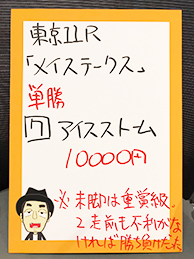 東京11R
「メイステークス」
単勝
7 アイスストーム
10000円
※末脚は重賞級。
2走前も不利がな
ければ勝ち負けだた